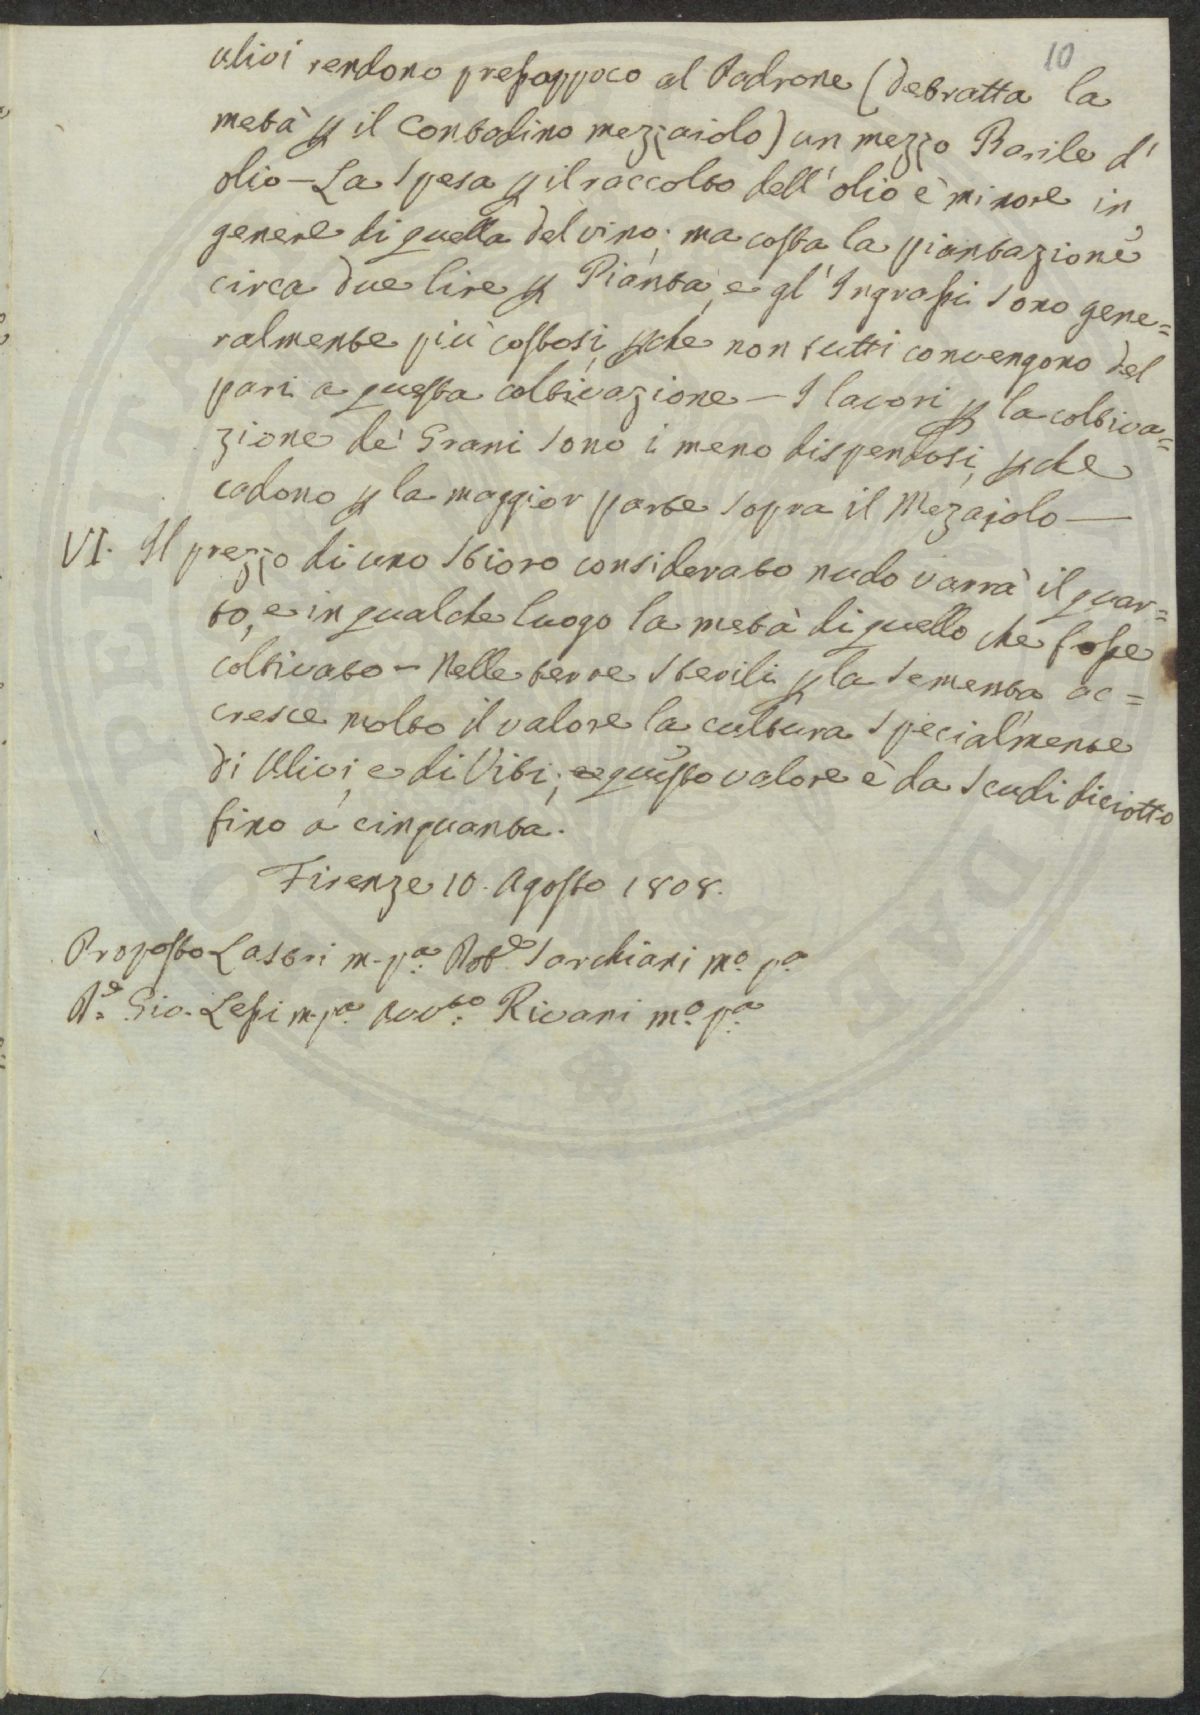 10
ulivi rendono pressappoco al Padrone (detratta la
metà p il Contadino mezzaiolo) un mezzo Barile d'
olio - La spesa p il raccolto dell'olio è minore in
genere di quella del vino; ma costa la piantazione
circa due lire p Pianta, e gl'Ingrassi sono gene=
ralmente più costosi, pchè non tutti convengono del
pari a questa coltivazione - I lavori p la coltiva=
zione de' Grani sono i meno dispendiosi, pchè
cadono p la maggior parte sopra il Mezaiolo —
VI. Il prezzo di uno stioro considerato nudo varrà il quar=
to, e in qualche luogo la metà di quello che fosse
coltivato - Nelle terre sterili p la sementa ac=
cresce molto il valore la cultura specialmente
di Ulivi, e di Viti; e questo valore è da scudi diciotto
fino a cinquanta.
Firenze 10. Agosto 1808.
Proposto Lastri m. pa. Dot.e Sarchiani mo. pa.
De. Gio. Lessi m. pa. Avvto. Rivani mo. pa.